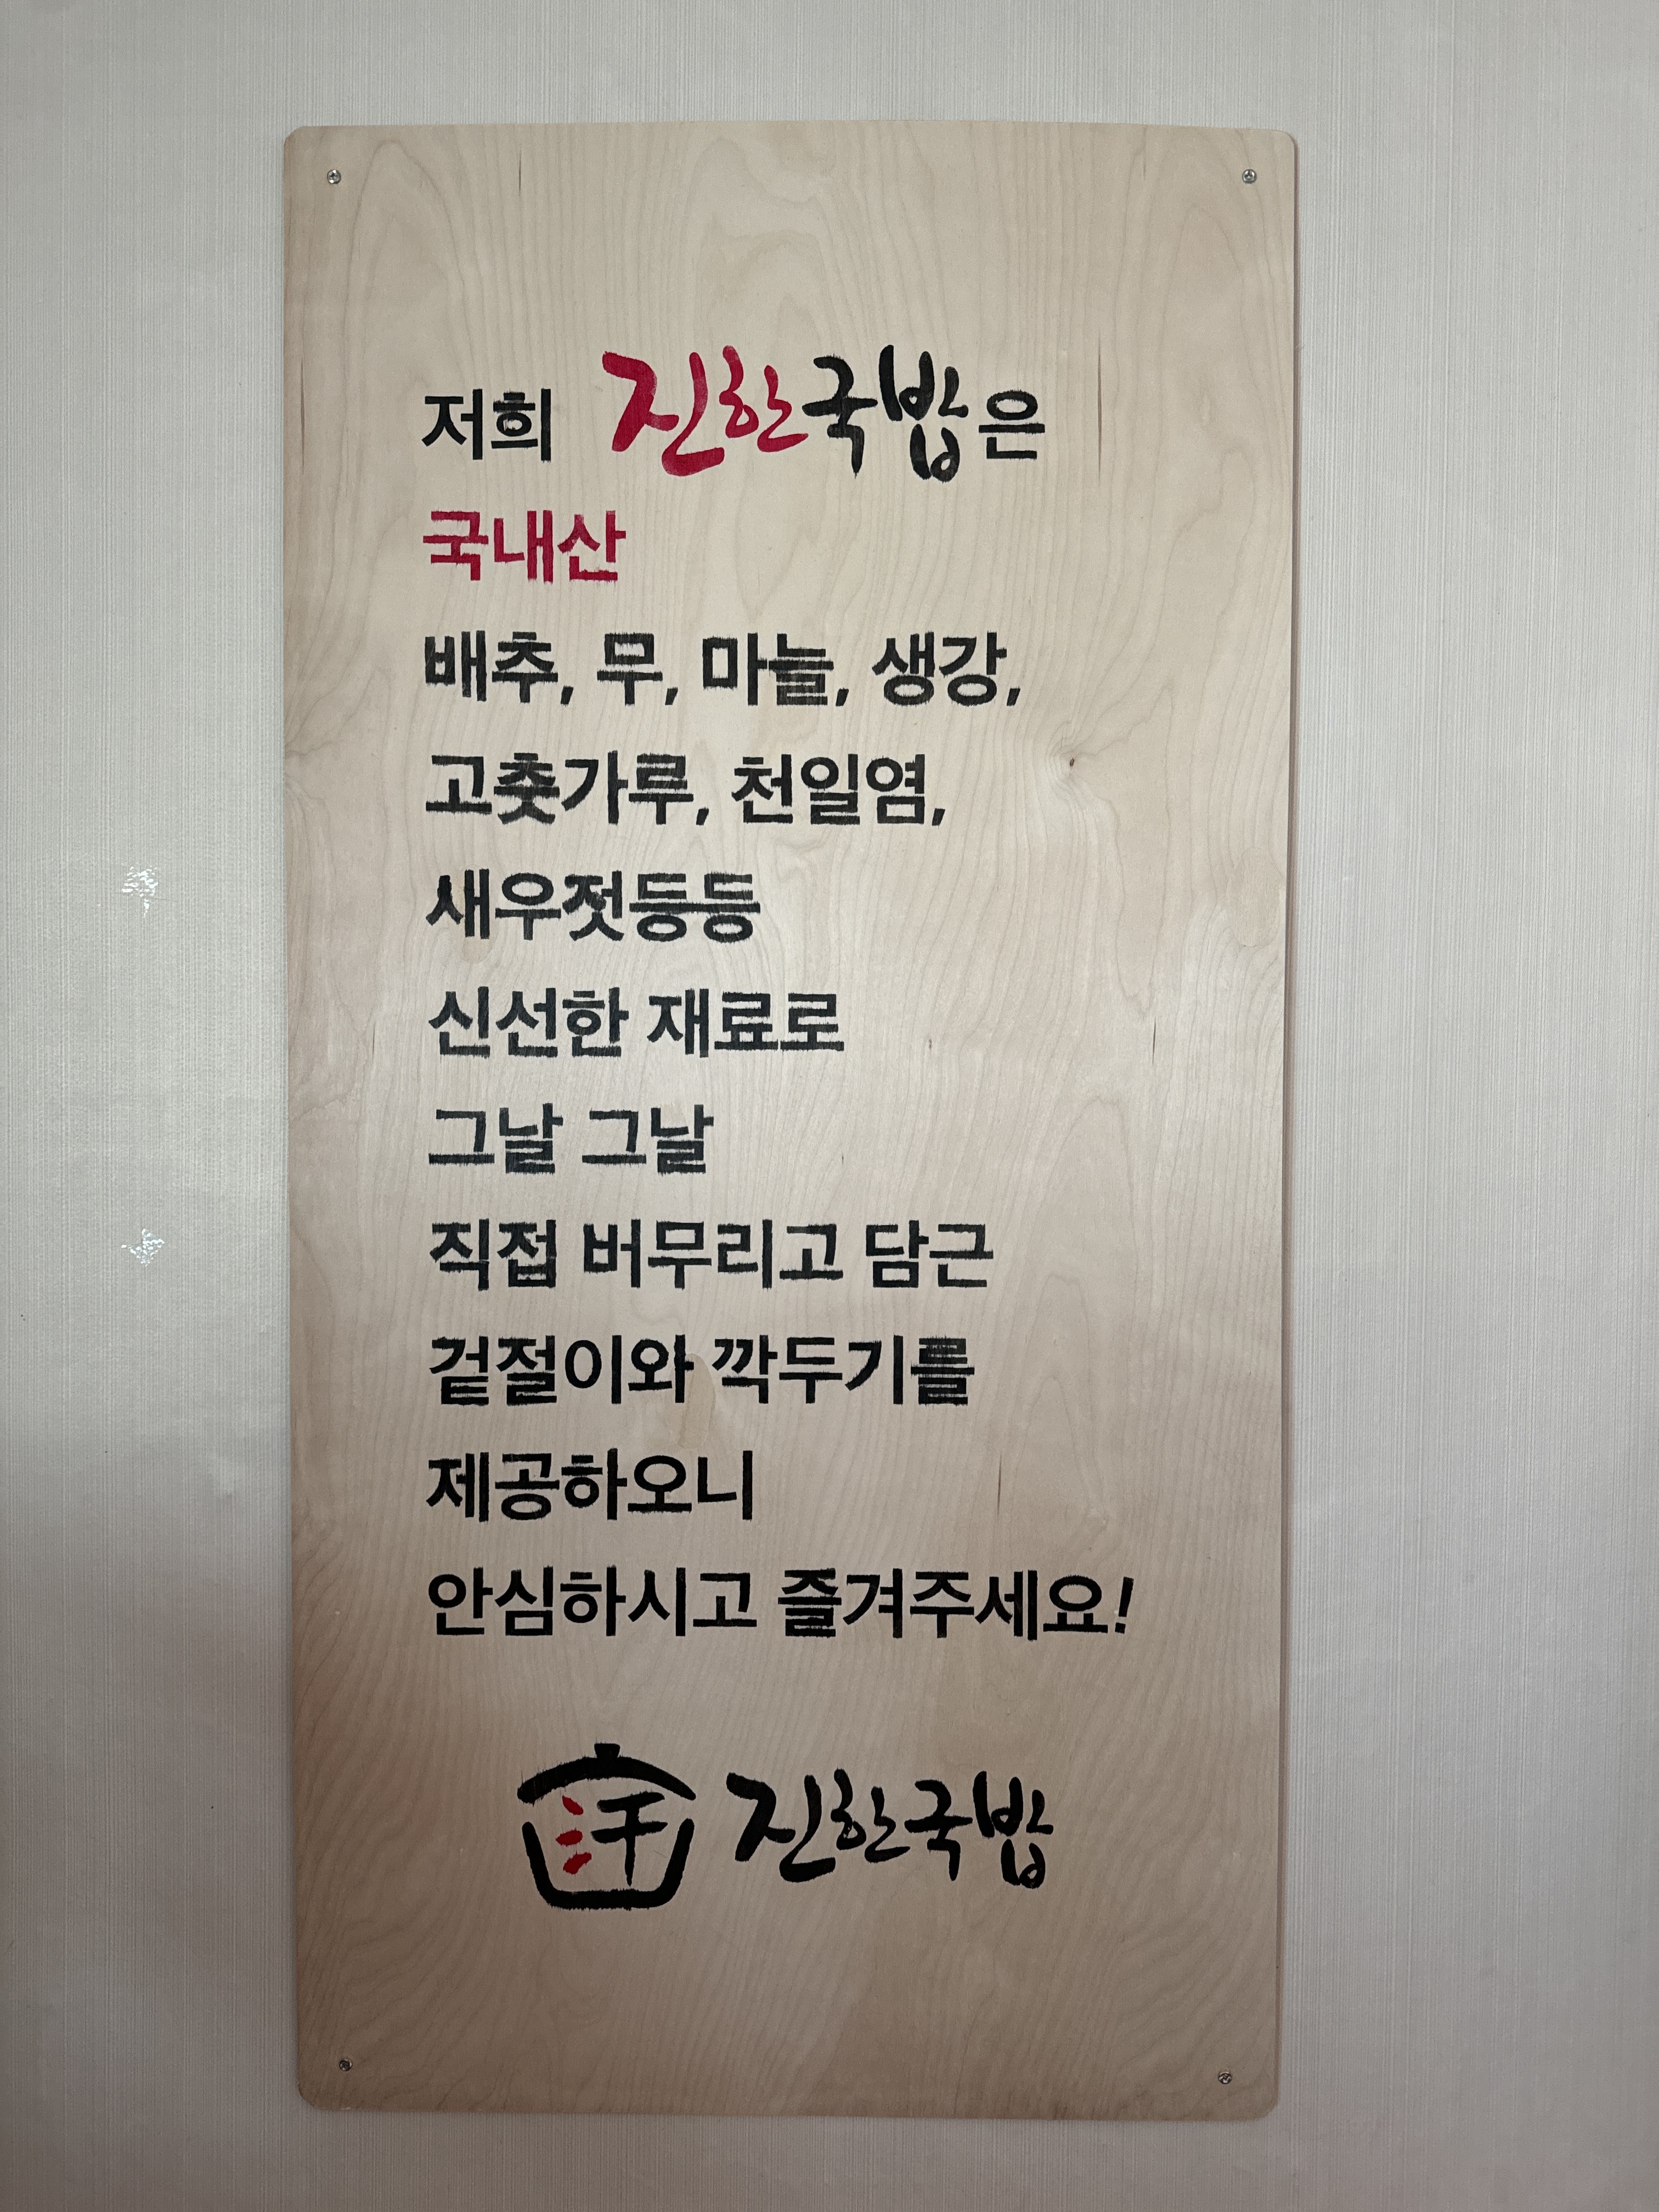 저희 진한국밥은
국내산
배추, 무, 마늘, 생강,
고춧가루, 천일염,
새우젓등등
신선한 재료로
그날 그날
직접 버무리고 담근
겉절이와 깍두기를
제공하오니
안심하시고 즐겨주세요!
汗 진한국밥